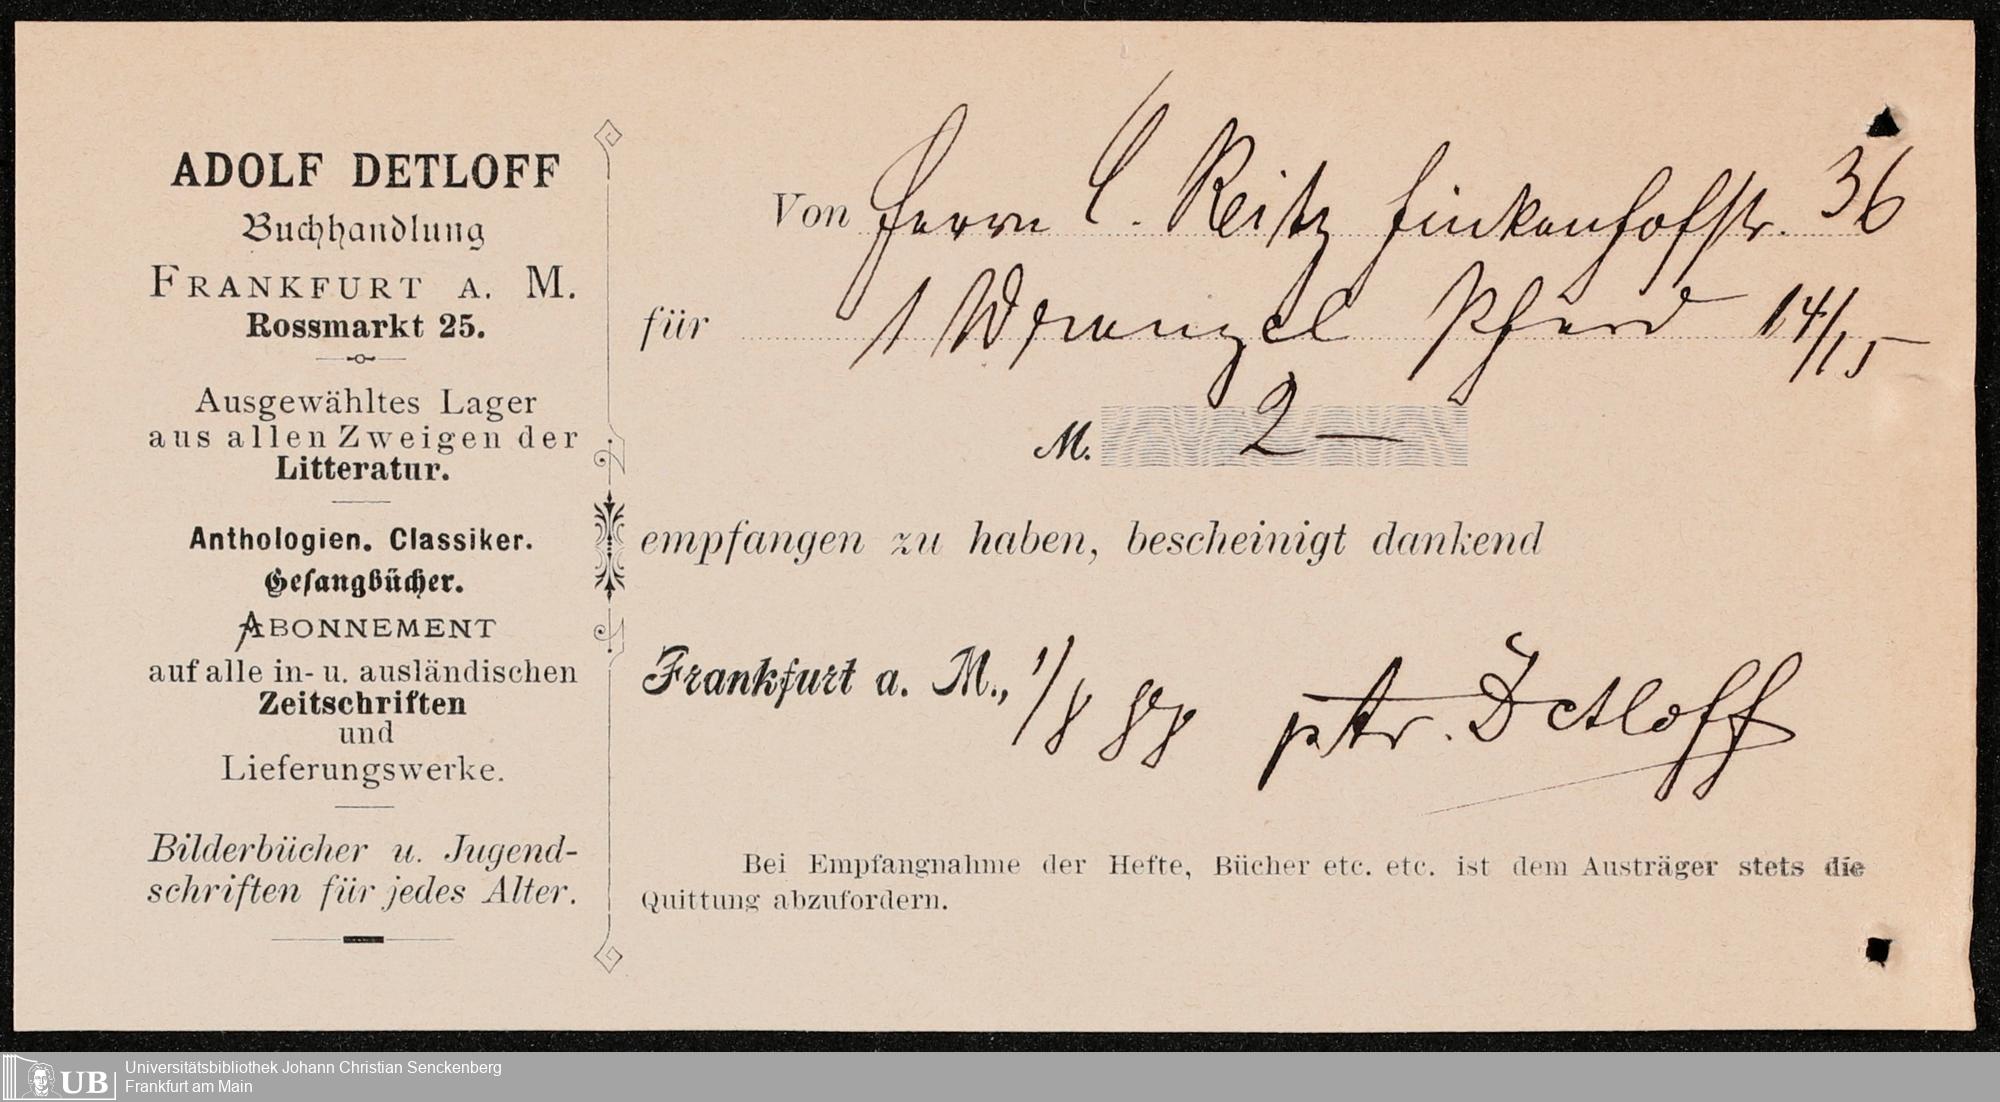 ADOLF DETLOFF
Buchhandlung
FRANKFURT A. M.
Rossmarkt 25.
Ausgewähltes Lager
aus allen Zweigen der
Litteratur.
Anthologien. Classiker.
Gesangbücher.
ABONNEMENT
auf alle in- u. ausländischen
Zeitschriften
und
Lieferungswerke.
Bilderbücher u. Jugend-
schriften für jedes Alter.
Von Herrn C. Reitz Finkenhofstr. 36
für 1 Wrangel Pferd 14/15
M. 2 —
empfangen zu haben, bescheinigt dankend
Frankfurt a. M., 1/8 88 ptr. Detloff
Bei Empfangnahme der Hefte, Bücher etc. etc. ist dem Austräger stets die
Quittung abzufordern.
UB Universitätsbibliothek Johann Christian Senckenberg
Frankfurt am Main